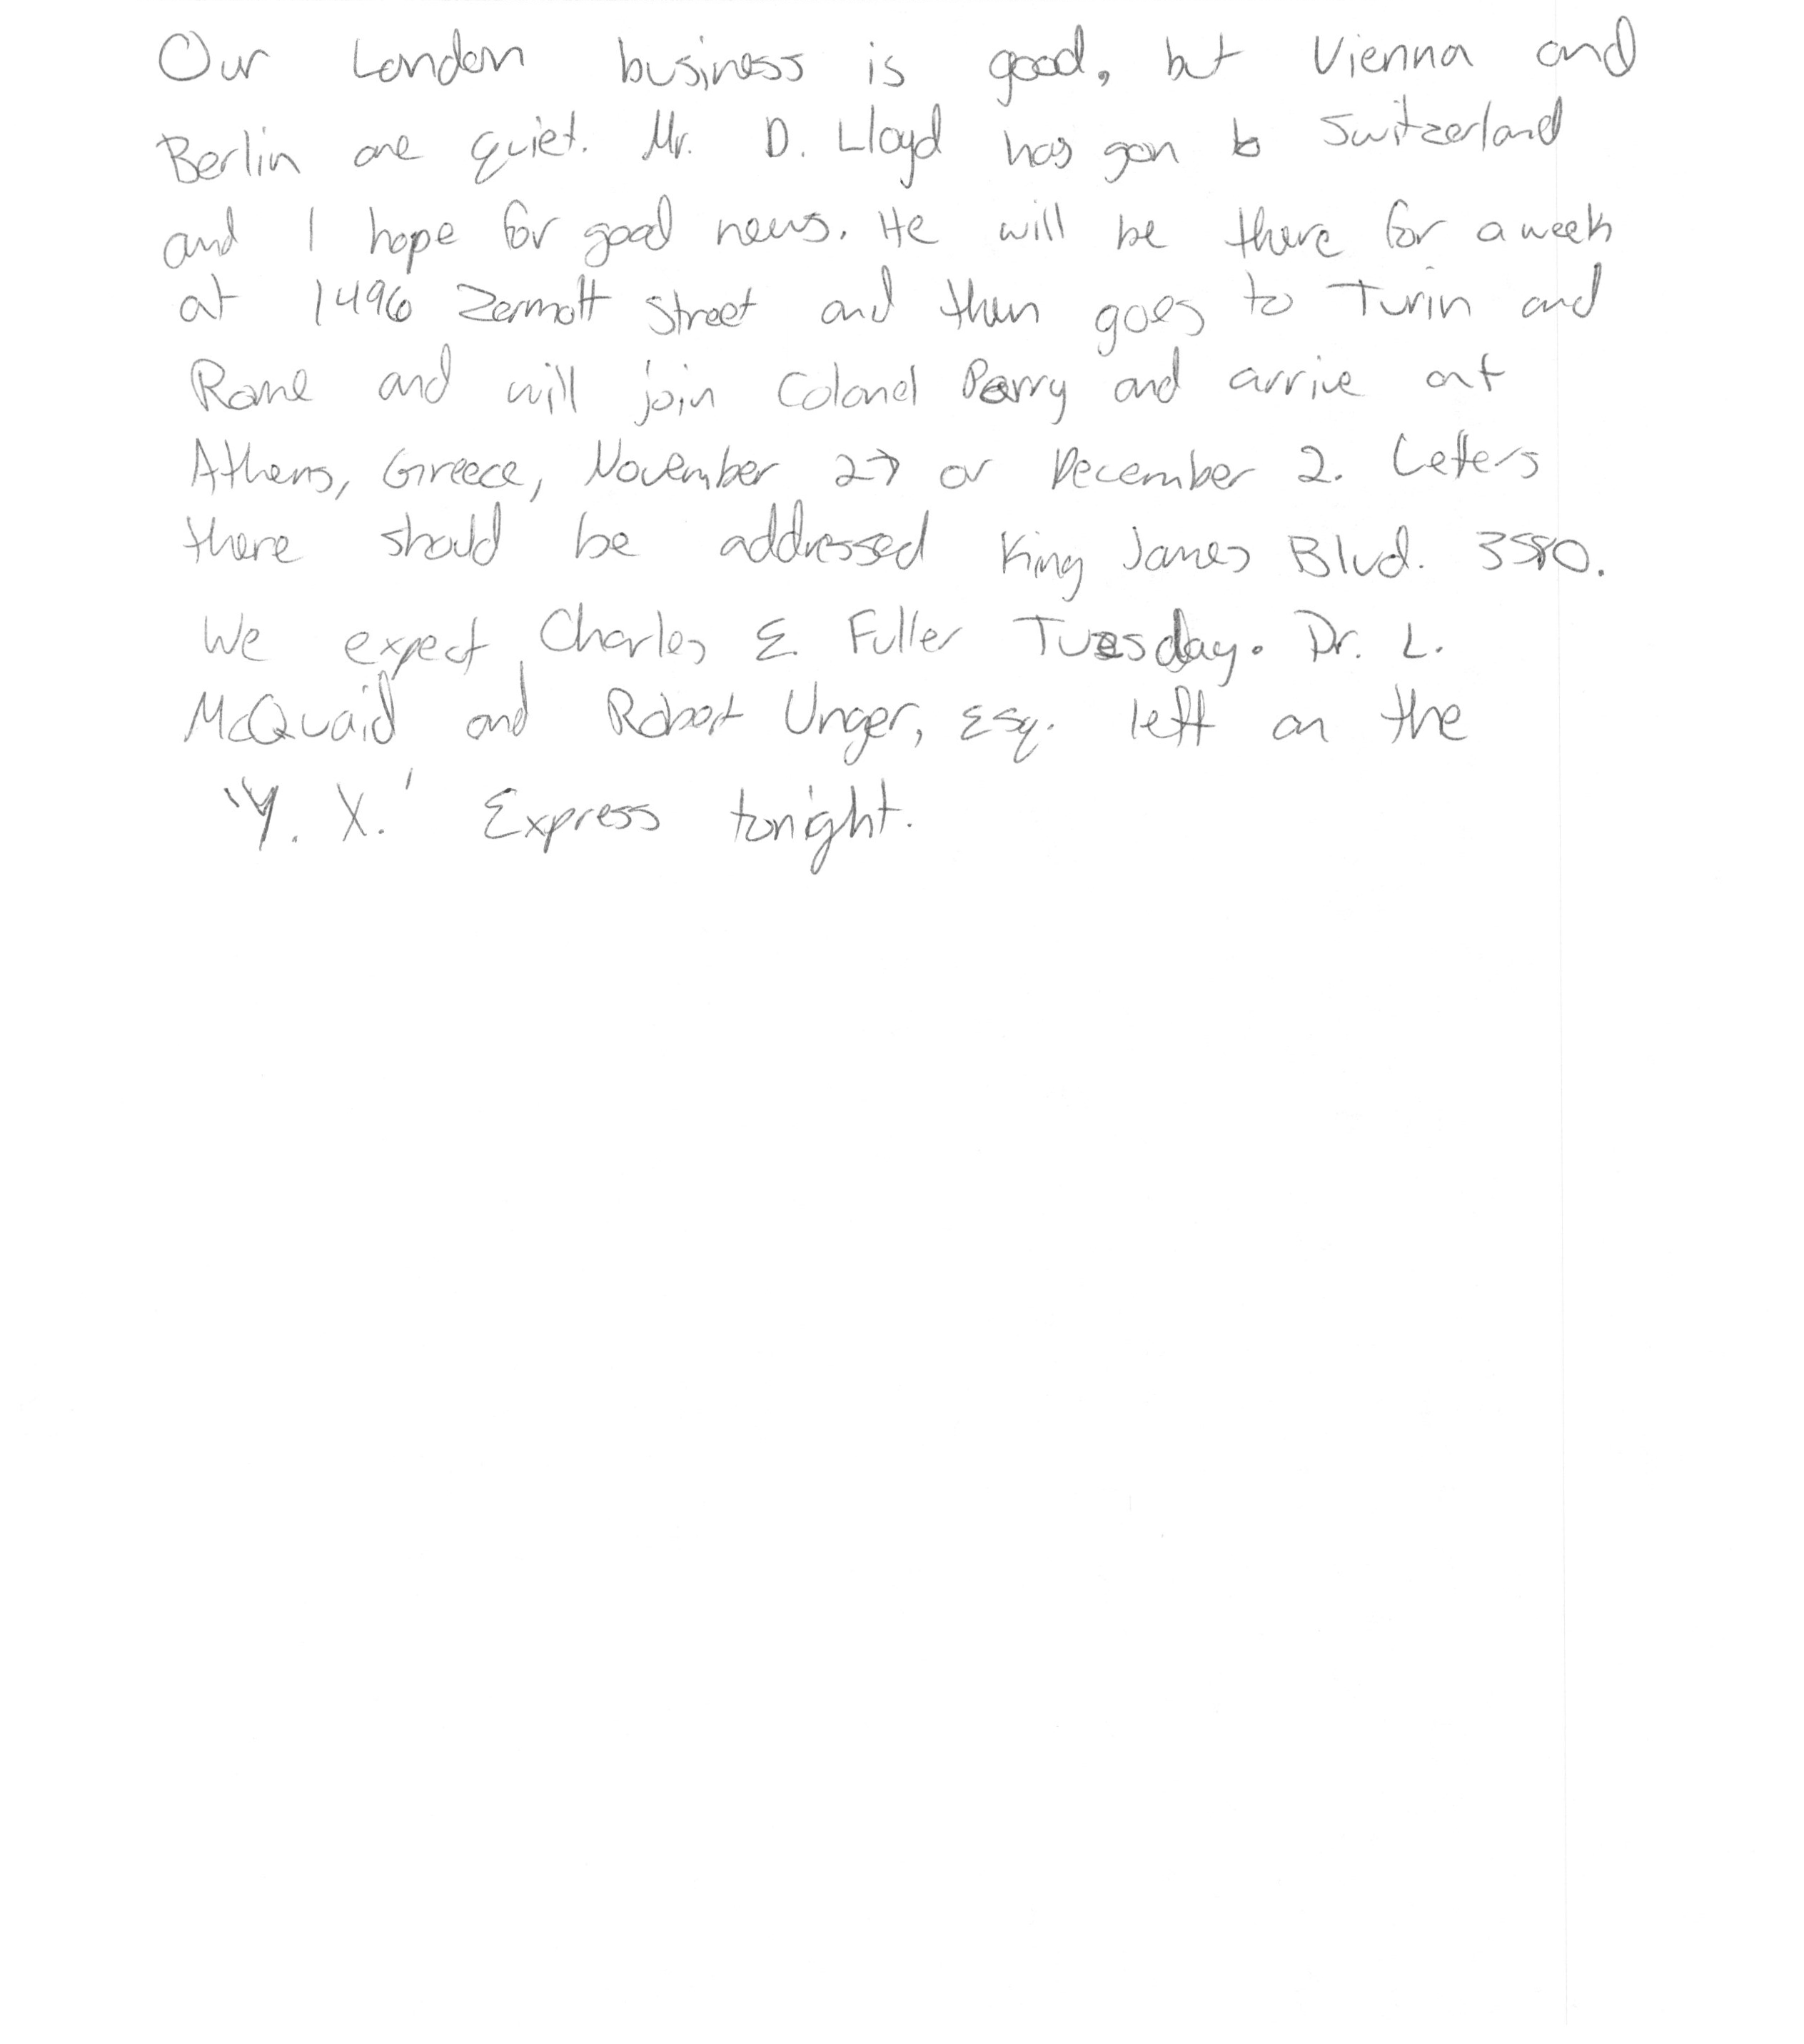 Our London business is good, but Vienna and
Berlin are quiet. Mr. D. Lloyd has gon to Switzerland
and I hope for good news. He will be there for a week
at 1496 Zermott Street and then goes to Turin and
Rome and will join Colonel Parry and arrive at
Athens, Greece, November 27 or December 2. Letters
there should be addressed King James Blvd. 3580.
We expect Charles E. Fuller Tuesday. Dr. L.
McQuaid and Robert Unger, Esq. left on the
'Y. X.' Express tonight.